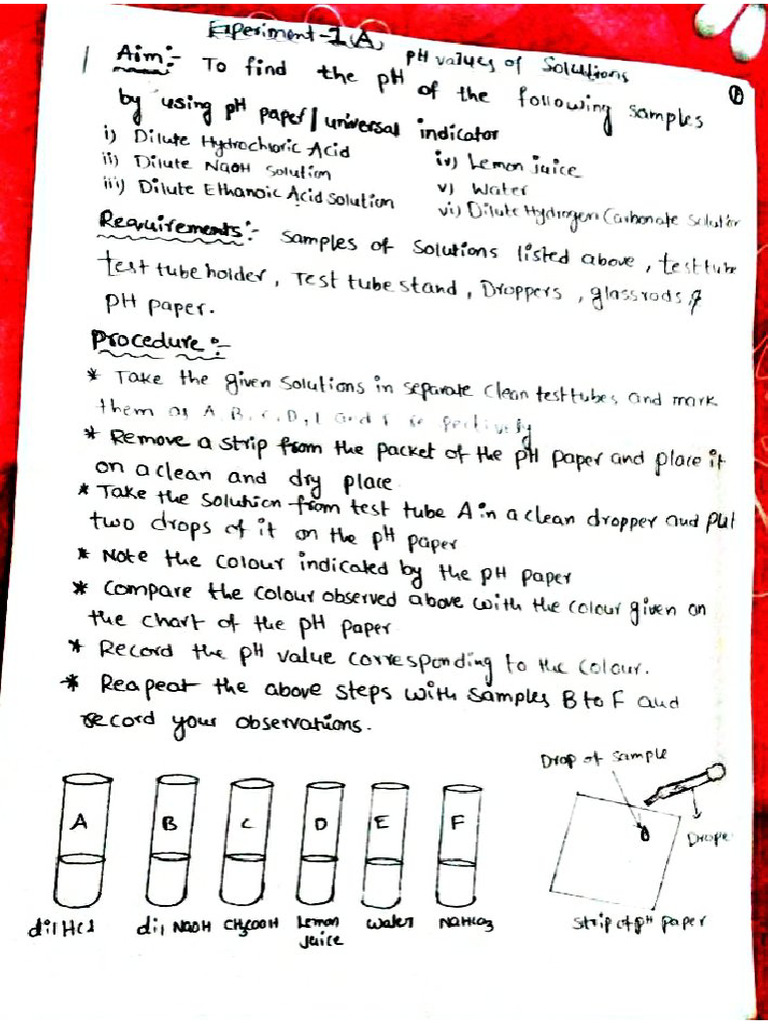 Experiment-1(A) pH values of Solutions
1
Aim:- To find the pH of the following samples
by using pH paper/universal indicator
i) Dilute Hydrochloric Acid
ii) Dilute NaOH solution
iii) Dilute Ethanoic Acid solution
iv) Lemon juice
v) Water
vi) Dilute Hydrogen Carbonate Solution
Requirements:- Samples of Solutions listed above, test tube
test tube holder, Test tube stand, Droppers, glassrods &
PH paper.
Procedure:-
* Take the given Solutions in separate clean testtubes and mark
them as A, B, C, D, and respectively
* Remove a strip from the packet of the pH paper and place it
on a clean and dry place
* Take the solution from test tube A in a clean dropper and put
two drops of it on the pH paper
* Note the colour indicated by the pH paper
* Compare the colour observed above with the colour given on
the chart of the pH paper
* Record the pH value corresponding to the colour.
* Reapeat the above steps with samples B to F and
record your observations.
Drop of Sample
A B C D E F
Drope
dil HCl dil NaOH CH3COOH Lemon juice Water NaHCO3
Strip of pH paper